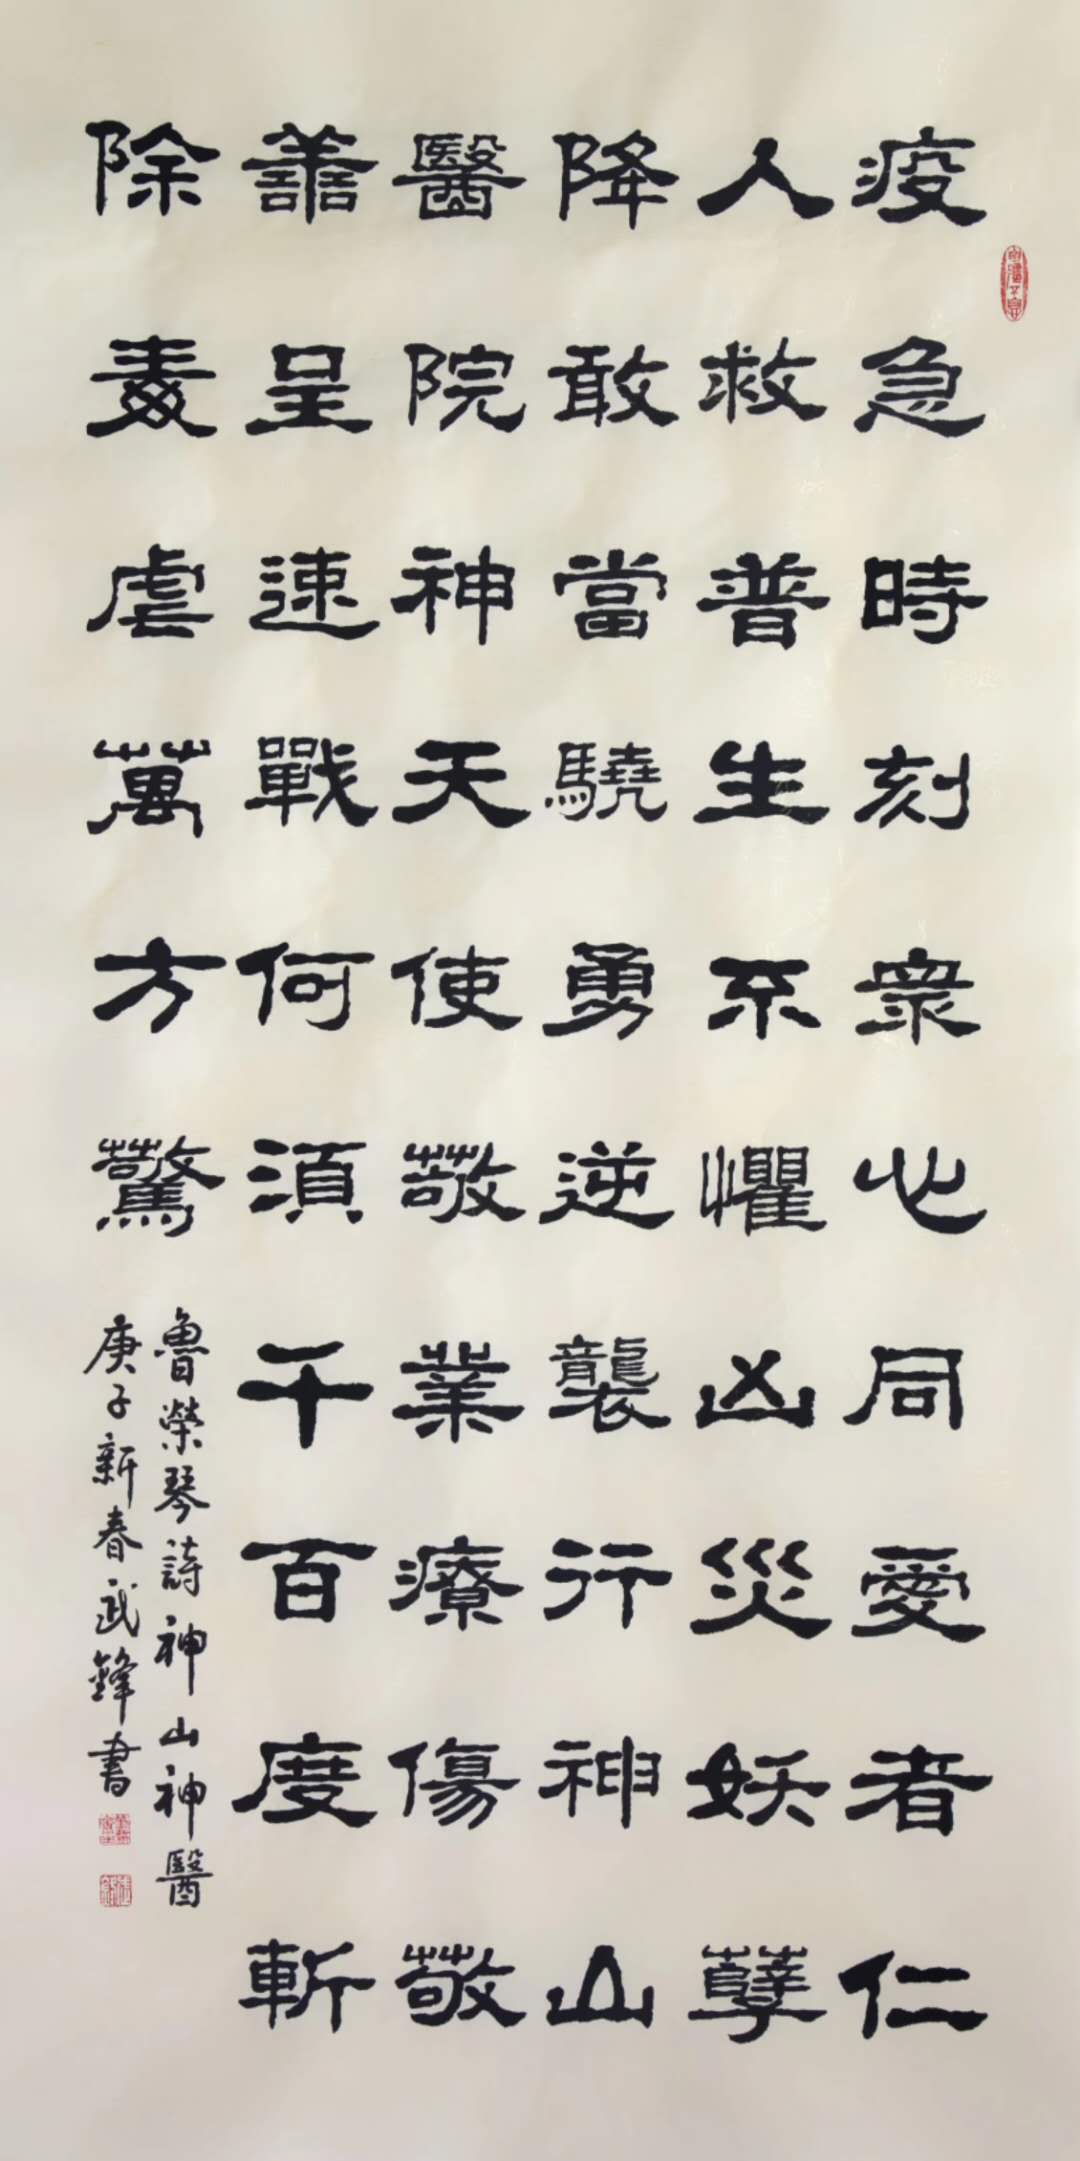 疫急時刻衆心同愛者仁
人救普生不懼凶災妖孽
降敢當驍勇逆襲行神山
醫院神天使敬業療傷敬
善呈速戰何須千百度斬
除毒虐萬方驚
魯榮琴詩神山神醫
庚子新春武鋒書